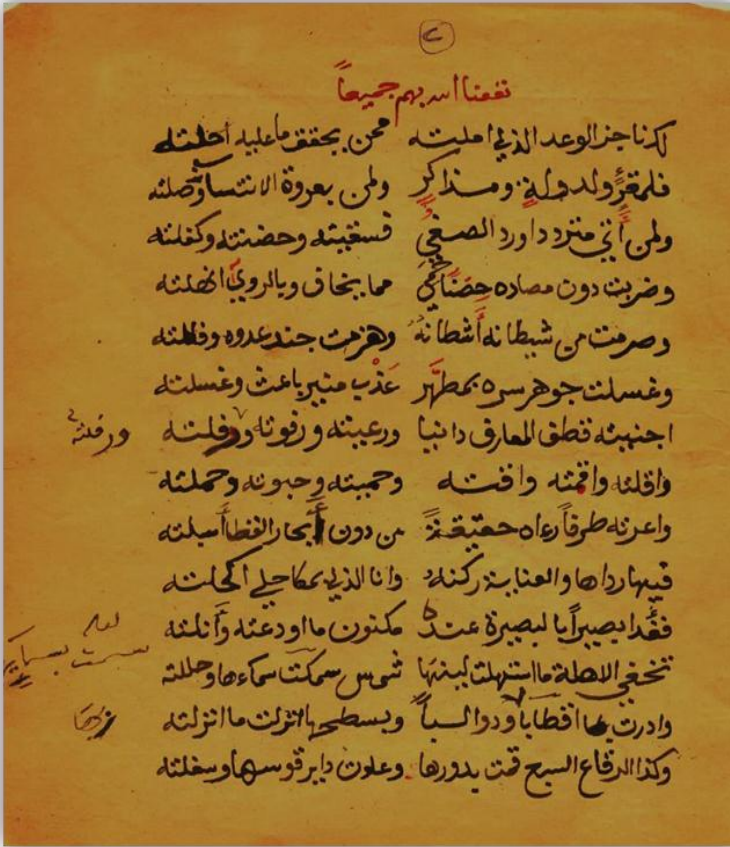 ٢
نفعنا الله بهم جميعاً
لكرنا جز الوعد الذي امليته ممن يحقق ما عليه احلته
فلمقرئ ولدولة ومذاكر ولمن بعروة الانتساب وصلته
ولمن أتى متردداورد الصفي فسقيته وحضنته وكفلته
وضربت دون مصاده حصناً حمى مما يخاف وبالروي انهلته
وصرمت من شيطانه أشطانه وهزمت جند عدوه وفللته
وغسلت جوهر سره بمطهر عذب منير باعث وغسلته
اجنيته قطف المعارف دانيا ورعيته ورفوته ورفلته ورفلته
واقلته واقمته واقته وحميته وحبوته وحملته
واعرته طرفاً رءاه حقيقةً من دون أبحار الغطا أسبلته
فيها رداها والعناية ركنه وانا الذي بمكاحلي اكحلته
فغدا بصيراً بالبصيرة عنده مكنون ما اودعته وأنلته
لعله سمت بسماء
تخفى الاهلة ما استهلت لبينها شمس سمكت سماءها وحللته
وادرت بها اقطابا ودوالسبأ وبسطحها انزلت ما انزلته
بها
وكذا الرقاع السبع قمت بدورها وعلوت داير قوسها وسفلته